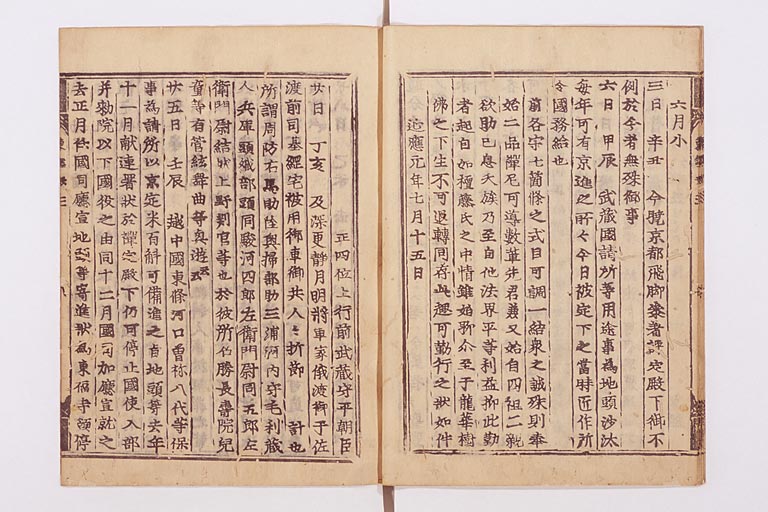 六月小
三日　辛丑　今曉京都飛脚參著禪定殿下御不
例於今者無殊御事
六日　甲辰　武藏國請所等用途事爲地頭沙汰
每年可有京進之所々今日被定下之當時匠作所
令國務給也
前各守七箇條之式目可調一結衆之誠殊則奉
始二品禪尼可導數輩先君兼又始自四祖二親
欲助巨息夭族乃至自他法界平等利益抑此勤
者起自如種藤氏之中情雖始介至于龍華樹
佛之下生不可退轉同存此趣可勤行之狀如件
延應元年七月十五日
正四位上行前武藏守平朝臣
廿日　丁亥　及深更靜月明將軍家俄渡御于佐
渡前司基綱宅被用御車御共人々折節　計也
所謂周防右馬助陸奧掃部助三浦河內守毛利藏
人兵庫頭織部頭同駿河四郎左衛門尉同五郎左
衛門尉結城上野判官等也於彼所召勝長壽院兒
童等有管絃舞曲等興遊云々
廿五日　壬辰　越中國東條河口曾祢八代等保
事爲請所以京定米百斛可備進之旨地頭等去年
十一月献連署狀於禪定殿下仍可停止國使入部
并勅院以下國役之由同十二月國司加廳宣就之
去正月任國司廳宣地頭等寄進狀爲東福寺領停